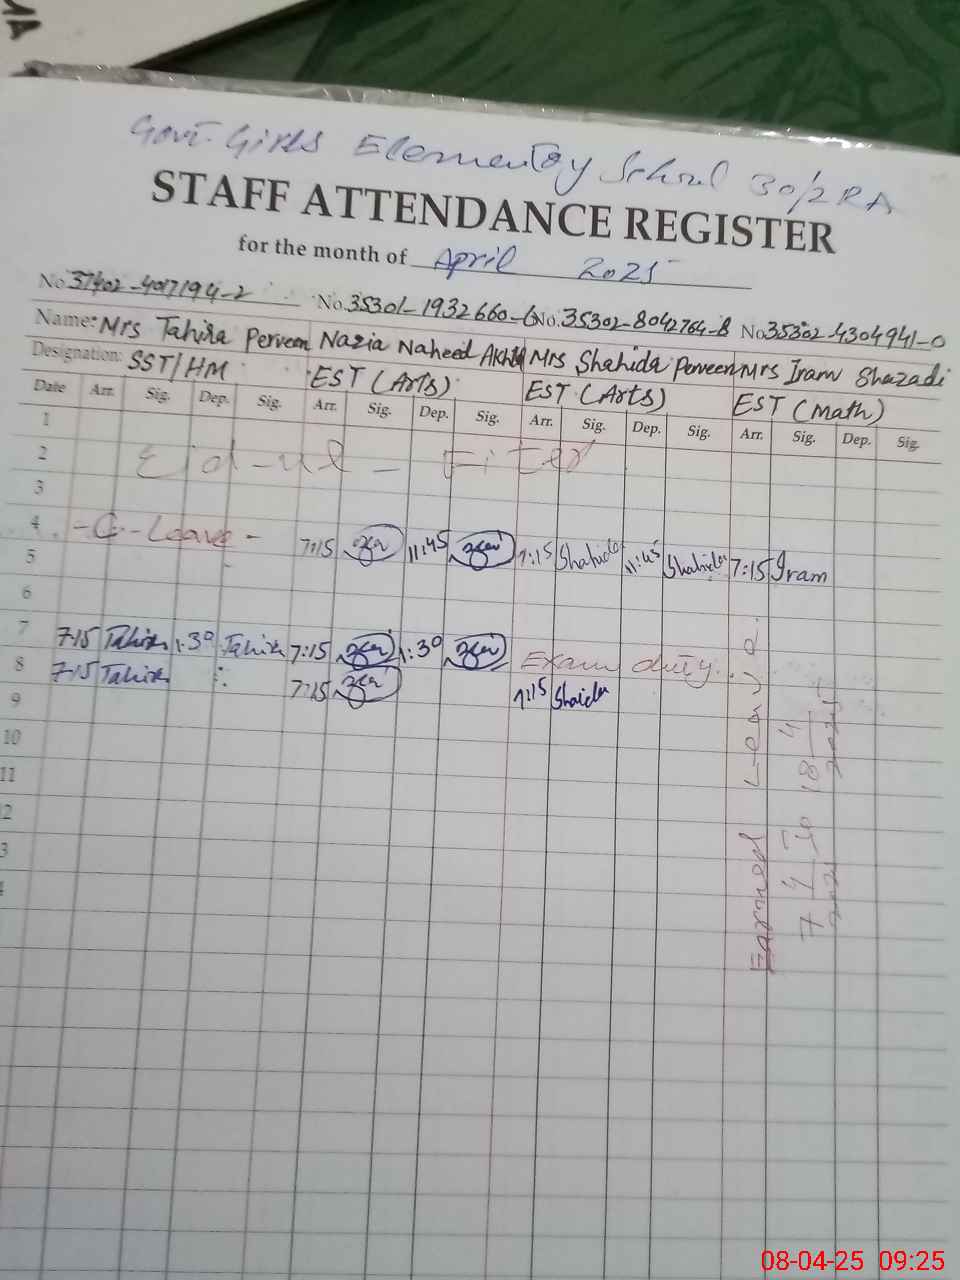 Govt. Girls Elementay School 30/2RA
STAFF ATTENDANCE REGISTER
for the month of April 2025
No. 37402-4017194-2 No. 35301-1932660-6 No. 35302-8042764-8 No 35302-4304941-0
Name: Mrs Tahira Perveen Nazia Naheed Akhtar Mrs Shahida Perveen Mrs Iram Shazadi
Designation: SST/HM EST (Arts) EST (Arts) EST (Math)
Date Arr. Sig. Dep. Sig. Arr. Sig. Dep. Sig. Arr. Sig. Dep. Sig. Arr. Sig. Dep. Sig.
1
2 Eid-ul-Fiter
3
4 -C-Leave- 7:15 11:45 7:15 Shahida 11:45 Shahida 7:15 Iram
5
6
7 7:15 Tahira 1:30 Tahira 7:15 1:30 Exam duty
8 7:15 Tahira 7:15 7:15 Shaida
9
10
11
2
3
Earned Leave
7 4 2025 To 18 4 2025
08-04-25 09:25